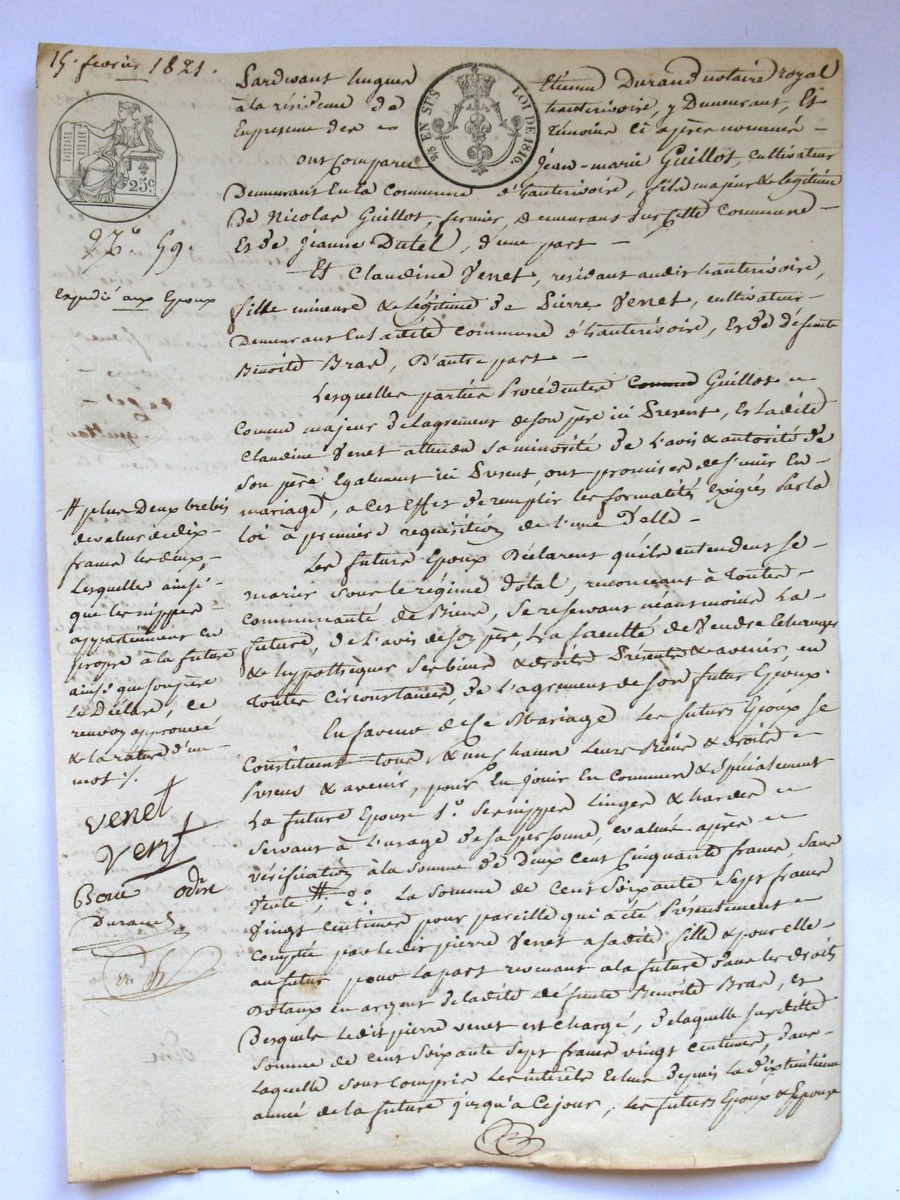 15. fevrier 1821.
Pardevant hugues Etienne Durand notaire royal
à la résidence de hauterivoire, y Demeurant, Et
En presence des témoins ci après nommés
25 EN SUS LOI DE 1816.
25c.
ont comparu Jean-marie Guillot, cultivateur
Demeurant En la Commune d'hauterivoire, fils majeur & légitime
De Nicolas Guillot, fermier, demeurant sur cette Commune
Et de Jeanne Dutel, d'une part
Et Claudine Venet, residant audit hauterivoire,
fille mineure & légitime de Pierre Venet, cultivateur
Demeurant En ladite Commune d'hauterivoire, Et de défunte
Benoite Bras, D'autre part
Lesquelles parties Procédentes Guillot
Comme majeur de l'agrement de son père ici Present, Et Ladite
Claudine Venet attendu sa minorité de L'avis & autorité de
son père Egalement ici Present, ont promis de s'unir En
mariage, a cet Effet de remplir les formalités Exigées Par la
loi à première requisition de l'une d'elle
Les futurs Epoux Déclarent qu'ils entendent se
marier sous le régime dotal, renonceant à toute
Communauté de Biens, Se reservant néanmoins La
future, de L'avis de son père, La faculté de Vendre Echanger
& hypothèquer ses biens & droits Présents & avenir, en
toute Circonstances, de L'agrement de son futur Epoux.
En faveur de Ce Mariage Les futurs Epoux se
Constituent tous & un Chacun Leurs Biens & droits
Presens & avenir, pour En jouir En Commun & Spécialement
La future Epouse 1o. Ses nippes Linges & hardes
Servant à L'usage de sa personne, évalués après
vérification à la somme de Deux Cent Cinquante francs, sans
Vente #; 2o. La somme de Cent Soixante Sept francs
Vingt Centimes pour pareille qui a été Présentement
Compté par ledit pierre Venet a sadite fille & pour elle
au futur pour La part revenant a la future dans les droits
Dotaux en argent de ladite défunte Benoite Bras, Et
Desquels ledit pierre venet est Chargé, de laquelle susditte
Somme de Cent Soixante Sept francs vingt Centimes, dans
laquelle sont Compris Les interets Echus depuis la Dixhuitième
année de la future jusqu'à Ce jour, Les futurs Epoux & Epouse
No. 59.
Expedié aux Epoux
# plus Deux brebis
de valeur de dix
francs les deux,
Lesquelles ainsi
que les nippes
appartiennent En
propre à la future
ainsi que son père
Le Déclare, Ce
renvoy approuvé
& la rature d'un
mot ./.
venet
Venet
odin
Durand